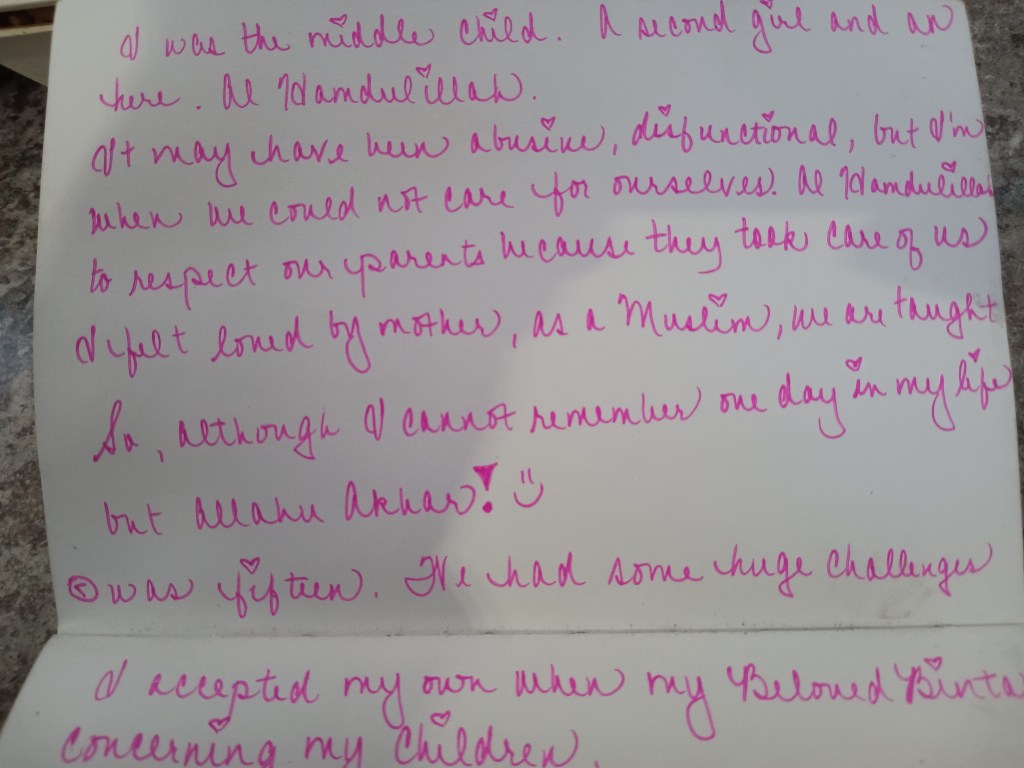 I was the middle child. A second girl and an
here. Al Hamdulillah.
It may have been abusive, disfunctional, but I'm
when we could not care for ourselves. Al Hamdulillah
to respect our parents because they took care of us
I felt loved by mother, as a Muslim, we are taught
So, although I cannot remember one day in my life
but Allahu Akbar! :)
was fifteen. He had some huge challenges
I accepted my own when my Beloved Binta
concerning my children.